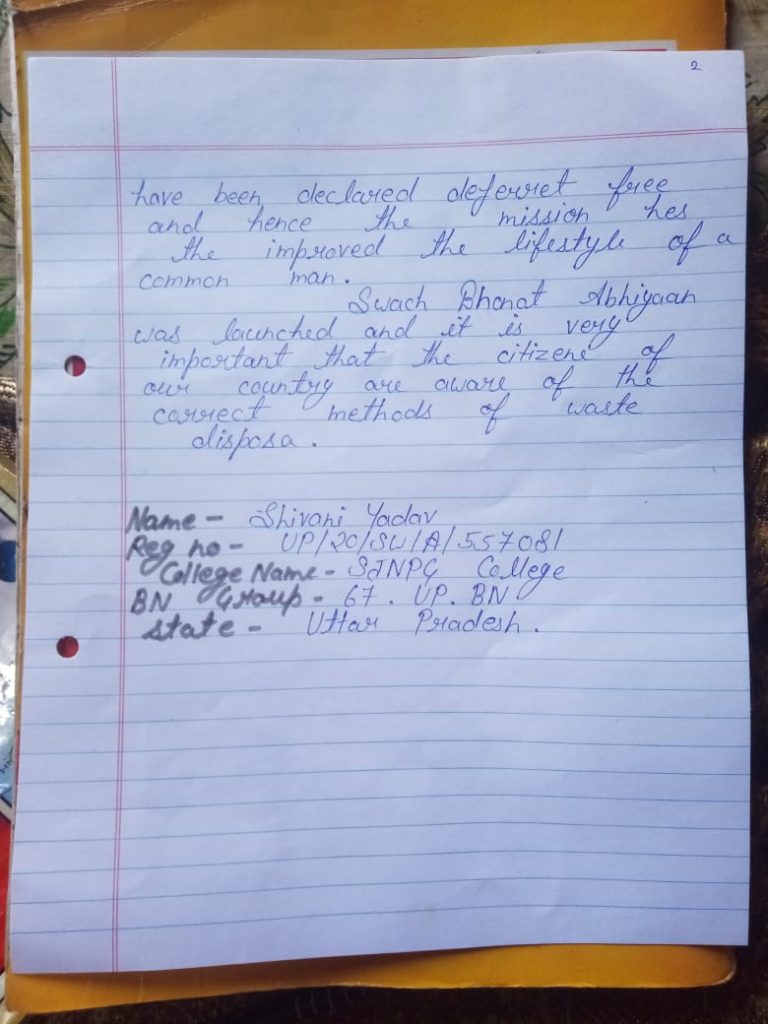 2
have been declared deferret free
and hence the mission hes
the improved the lifestyle of a
common man.
Swach Bharat Abhiyaan
was launched and it is very
important that the citizene of
our country are aware of the
correct methods of waste
disposa.
Name - Shivani Yadav
Reg no - UP/20/SW/A/557081
College Name - SJNPG College
BN Group - 67. UP. BN
state - Uttar Pradesh.